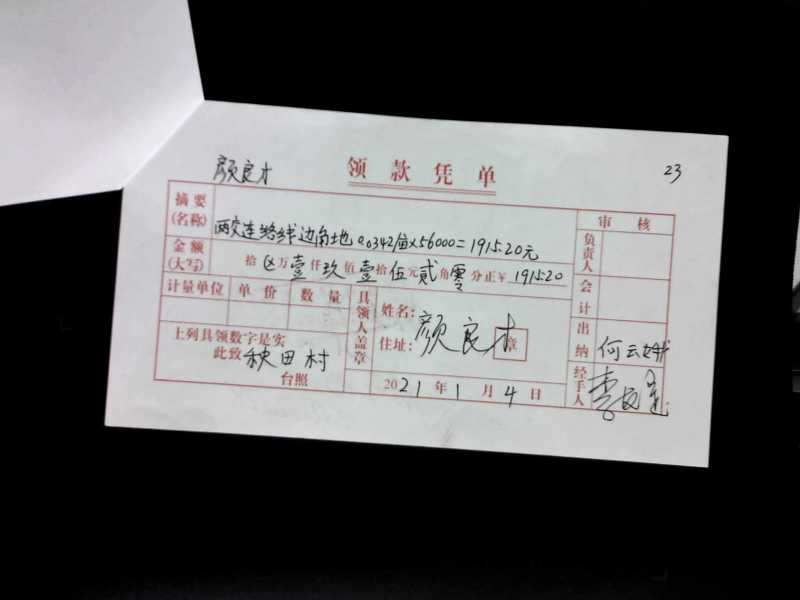 颜良才
领款凭单
23
摘要
(名称)
两交连络线边角地0.0342亩×56000=1915.20元
审核
金额
(大写)
拾⊗万壹仟玖佰壹拾伍元贰角零分正¥1915.20
负责人
计量单位 单价 数量
具领人盖章
姓名:
住址:
颜良才
章
会计
出纳
何云
上列具领数字是实
此致 秧田村
台照
2021年1月4日
经手人
李